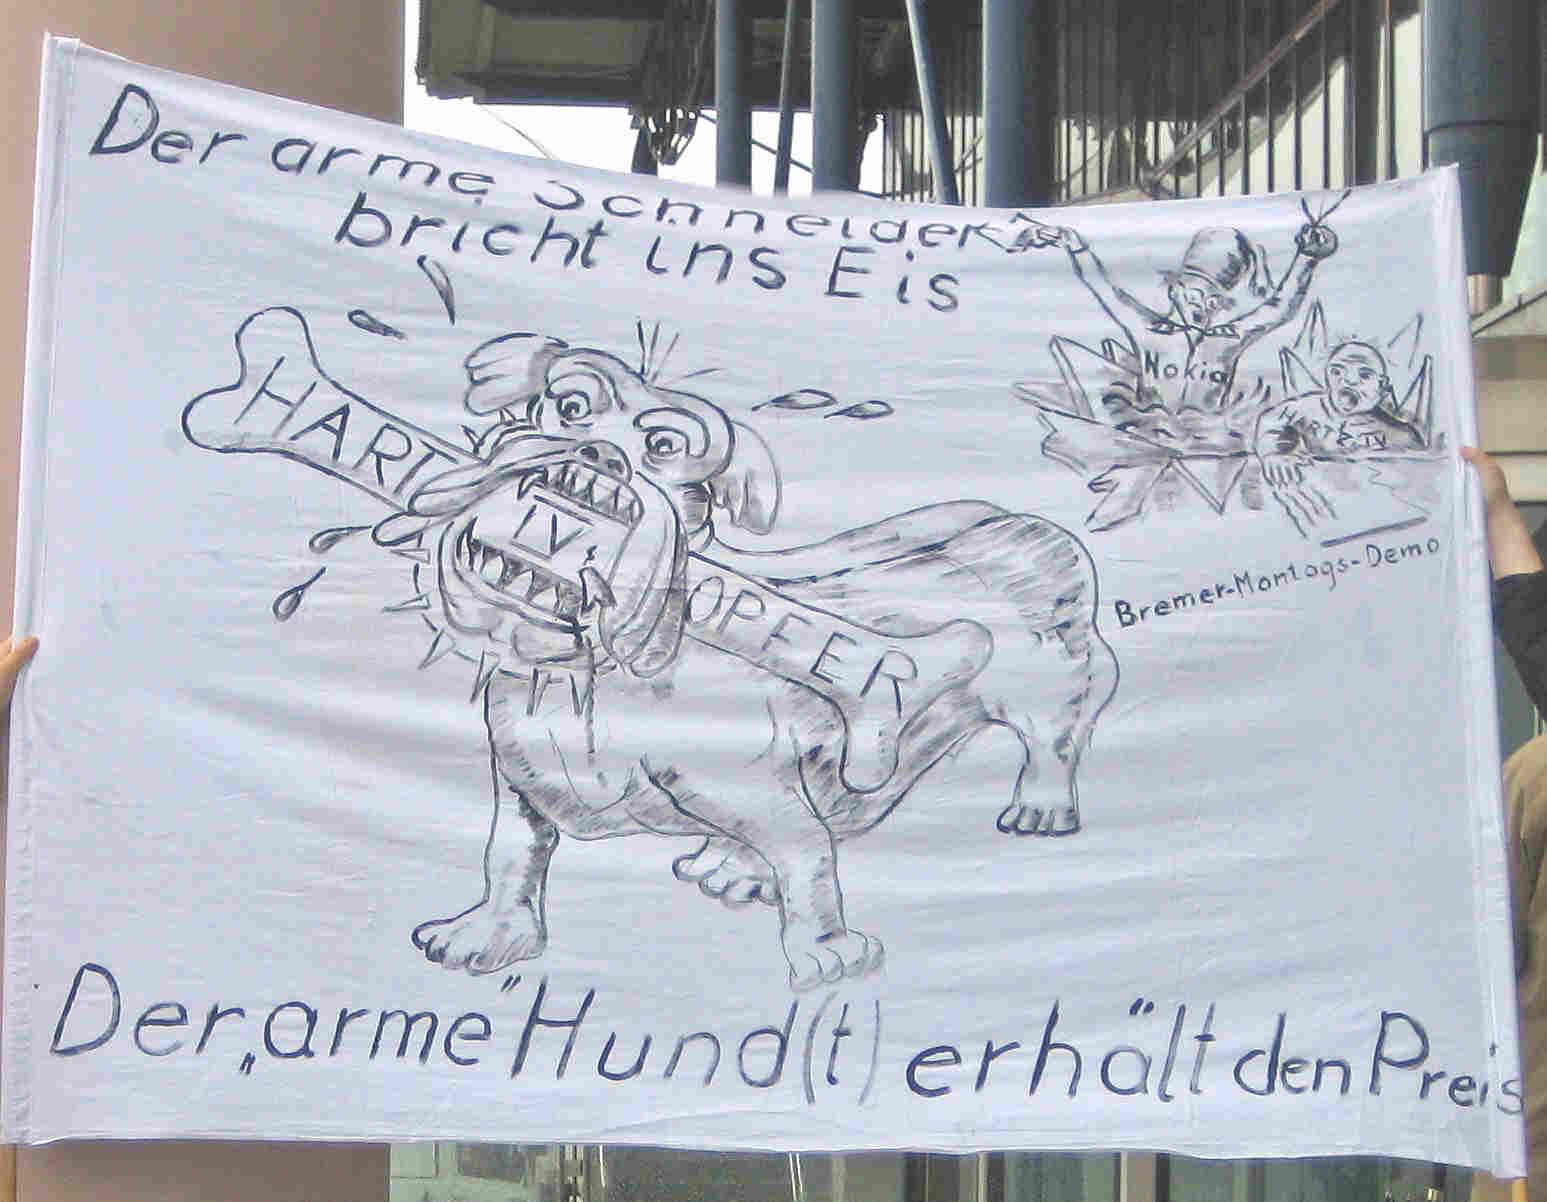 Der arme Schneider
bricht ins Eis
HARTZ IV OPFER
Nokia
HARTZ IV
Bremer-Montags-Demo
Der „arme" Hund(t) erhält den Preis